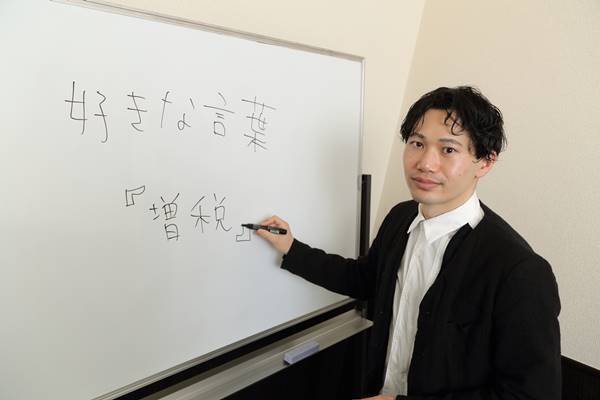 好きな言葉
『増税』